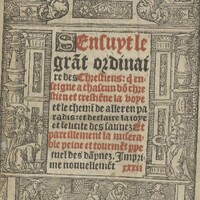 Sensuyt le
grãt ordinai
re des Chrestiens: q̃ en
seigne a chascun bõ chre
stien et crestiẽne la voye
et le chemi de aller en pa
radis: et declaire la ioye
et felicite des sauuez Et
pareillement la misera
ble peine et tourmẽt ppe
tuel des dãpnez. Impri
me nouuellemẽt
xxxii